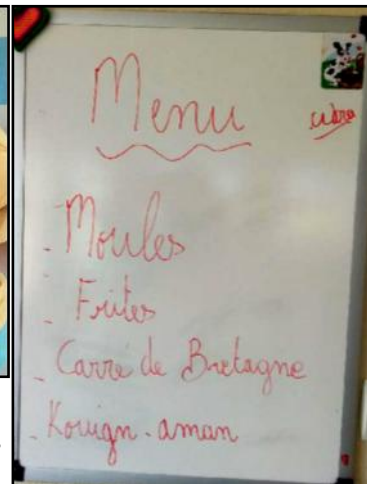 Menu
- Moules
- Frites
- Carré de Bretagne
- Kouign-aman